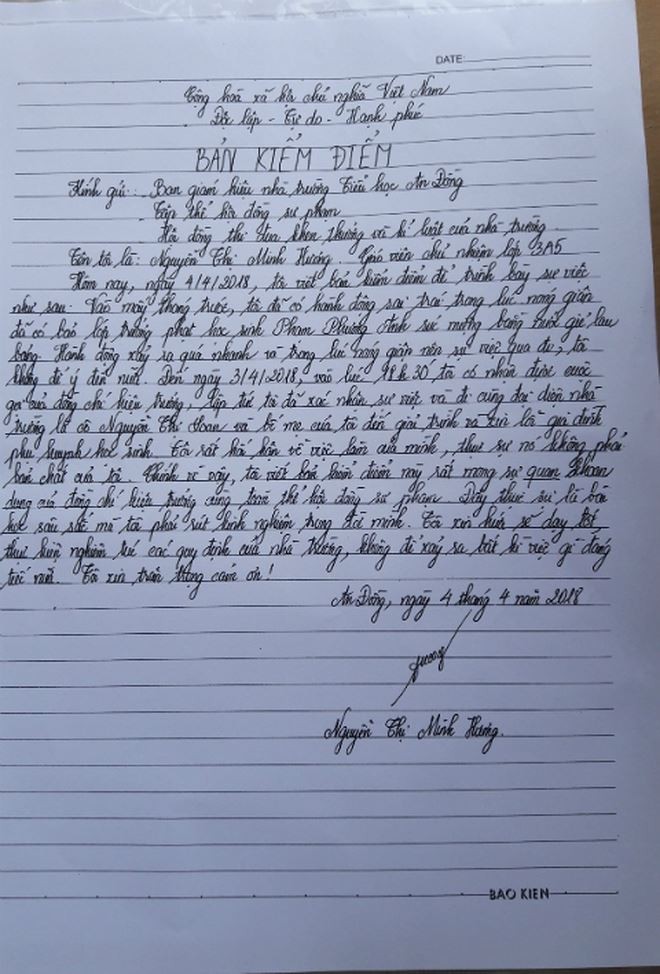 DATE:
Cộng hoà xã hội chủ nghĩa Việt Nam
Độc lập - Tự do - Hạnh phúc
BẢN KIỂM ĐIỂM
Kính gửi: - Ban giám hiệu nhà trường Tiểu học An Đồng
- Tập thể hội đồng sư phạm
- Hội đồng thi đua, khen thưởng và kỉ luật của nhà trường.
Tên tôi là: Nguyễn Thị Minh Hương. Giáo viên chủ nhiệm lớp 3A5
Hôm nay, ngày 4/4/2018, tôi viết bản kiểm điểm để trình bày sự việc
như sau: Vào mấy tháng trước, tôi đã có hành động sai trái trong lúc nóng giận
đã có bảo lớp trưởng phạt học sinh Phạm Phương Anh súc miệng bằng nước giẻ lau
bảng. Hành động xảy ra quá nhanh và trong lúc nóng giận nên sự việc qua đi, tôi
không để ý đến nữa. Đến ngày 3/4/2018, vào lúc 18h30 tôi có nhận được cuộc
gọi của đồng chí hiệu trưởng, lập tức tôi đã xác nhận sự việc và đi cùng đại diện nhà
trường là cô Nguyễn Thị Loan và bố mẹ của tôi đến giải trình và xin lỗi gia đình
phụ huynh học sinh. Tôi rất hối hận về việc làm của mình, thực sự nó không phải
bản chất của tôi. Chính vì vậy, tôi viết bản kiểm điểm này rất mong sự quan khoan
dung của đồng chí hiệu trưởng cùng toàn thể hội đồng sư phạm. Đây thực sự là bài
học sâu sắc mà tôi phải rút kinh nghiệm trong đời mình. Tôi xin hứa sẽ dạy tốt
thực hiện nghiêm túc các quy định của nhà trường, không để xảy ra bất kì việc gì đáng
tiếc nữa. Tôi xin trân trọng cảm ơn!
An Đồng, ngày 4 tháng 4 năm 2018
Hương
Nguyễn Thị Minh Hương.
BAO KIEN